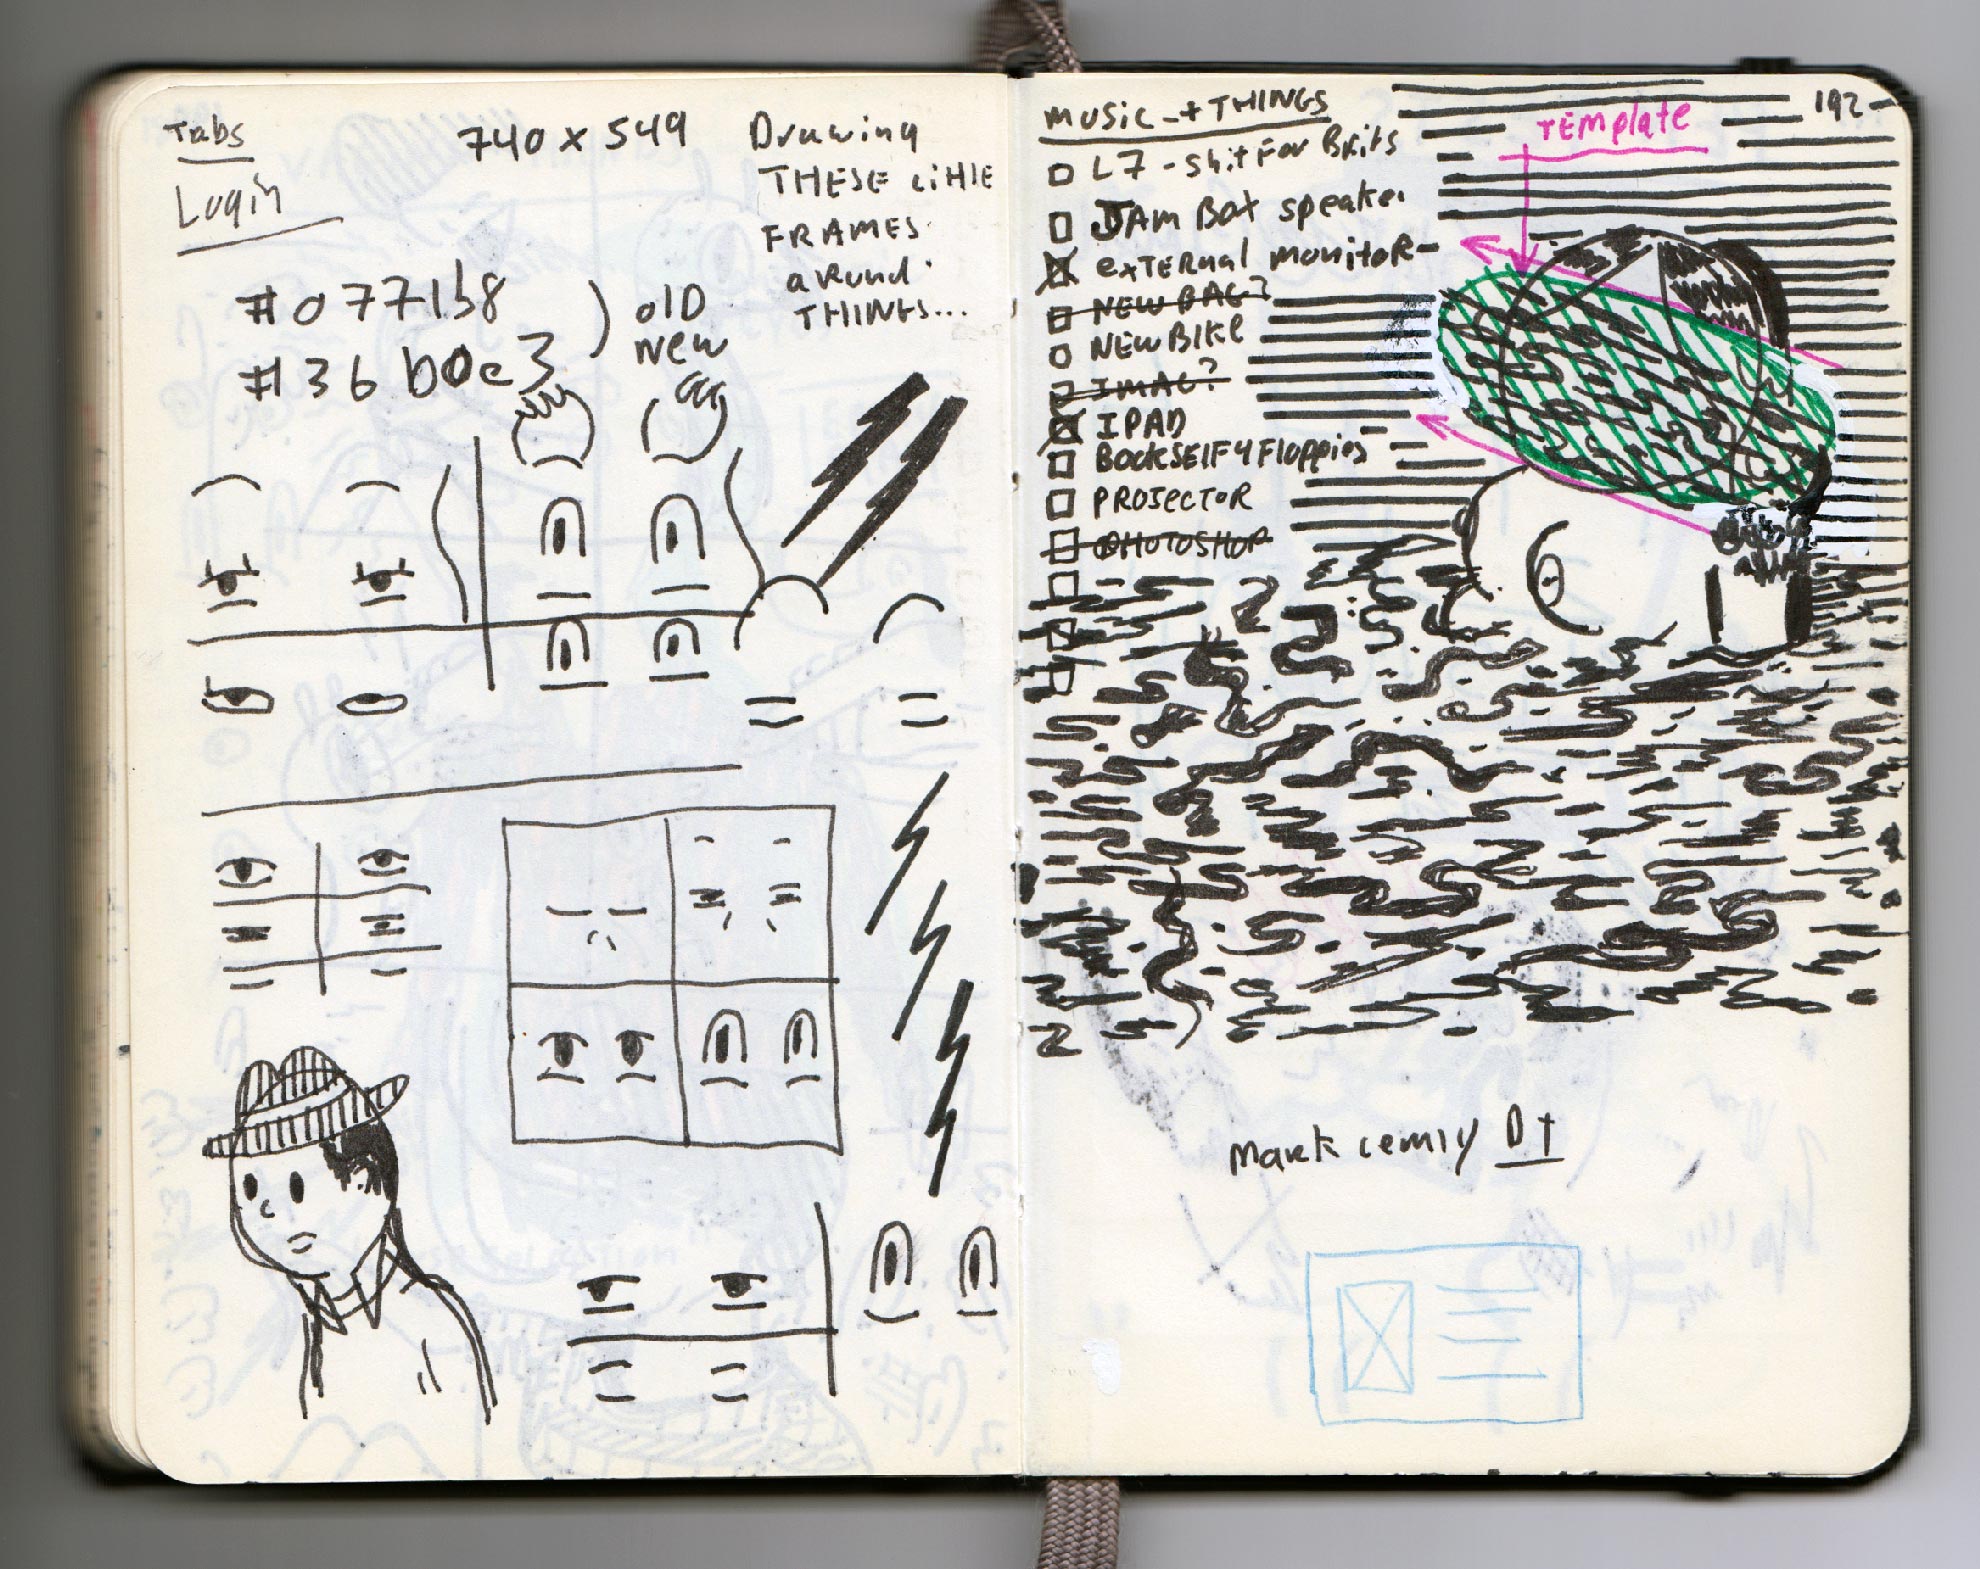 Tabs
Login
740 x 549
Drawing
THESE LITTLE
FRAMES
around
THINGS...
#0771b8
#36b0e3
old
new
MUSIC + THINGS
L7 - shit For Brits
JAM BOX speaker
exTERNAL moniToR
NEW BAG?
NEW BIKE
IMAC?
IPAD
BOOKSELF 4 Floppies
PROJECTOR
PHOTOSHOP
TEMPlate
192
Mark